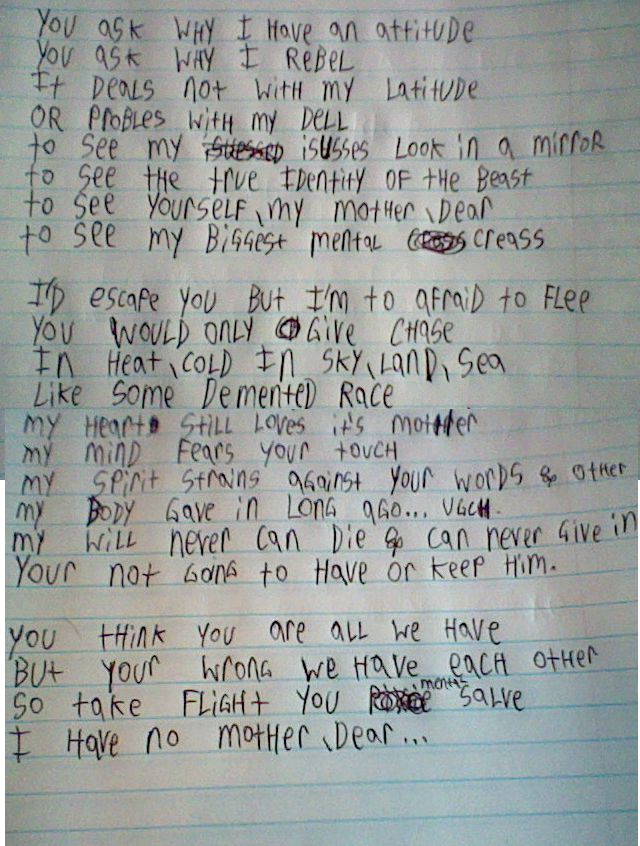 You ask why I Have an attitude
You ask why I Rebel
It Deals not with my Latitude
OR Probles with my Dell
to see my isusses Look in a mirror
to see the true Identity of the Beast
to see yourself, my mother, Dear
to see my Biggest mental creass
I'D escape you But I'm to afraid to Flee
You would only Give chase
In Heat, cold In sky, Land, sea
Like some Demented Race
my Heart still Loves it's mother
my mind Fears your touch
my spirit strains against your words & other
my Body Gave in Long ago... UGCH.
my will never can Die & can never Give in
Your not Gong to Have or keep Him.
You think you are all we Have
But your wrong we Have each other
So take Flight you mental salve
I Have no mother, Dear...